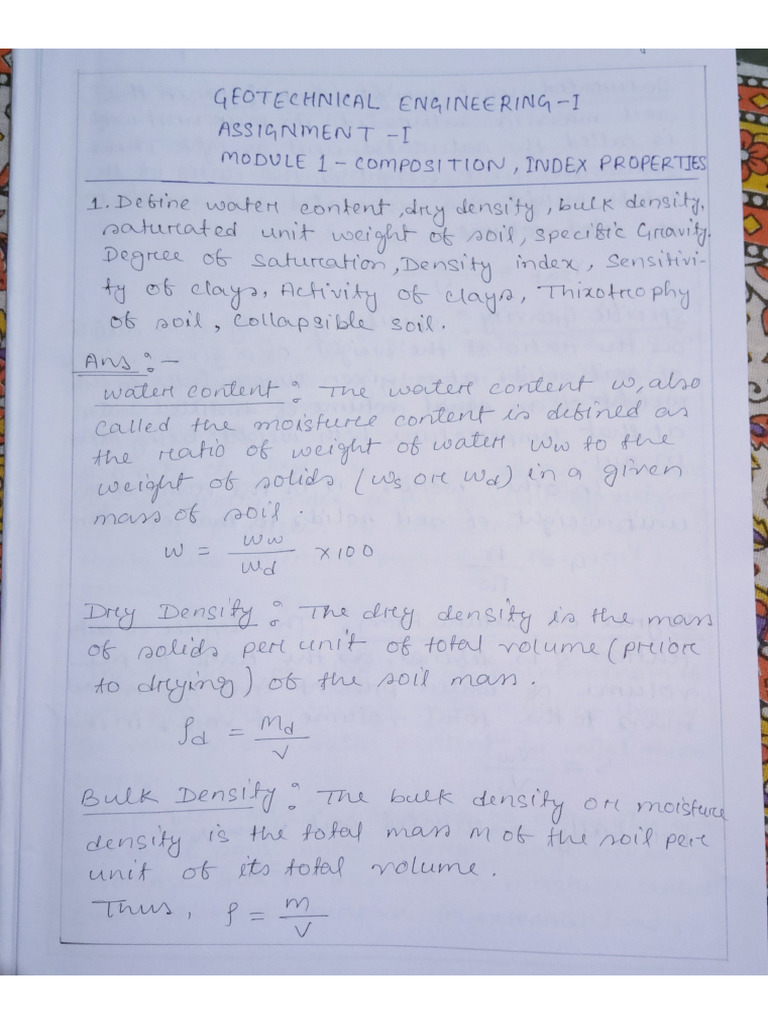 GEOTECHNICAL ENGINEERING-I
ASSIGNMENT -I
MODULE 1 - COMPOSITION, INDEX PROPERTIES
1. Define water content, dry density, bulk density,
saturated unit weight of soil, specific Gravity.
Degree of saturation, Density index, Sensitivi-
ty of clays, Activity of clays, Thixotrophy
of soil, collapsible soil.
Ans :-
water content : The water content w, also
called the moisture content is defined as
the ratio of weight of water Ww to the
weight of solids (Ws or Wd) in a given
mass of soil.
W = Ww/Wd x100
Dry Density : The dry density is the mass
of solids per unit of total volume (priore
to drying) of the soil mass.
ρd = Md/V
Bulk Density : The bulk density or moisture
density is the total mass M of the soil per
unit of its total volume.
Thus, ρ = m/V